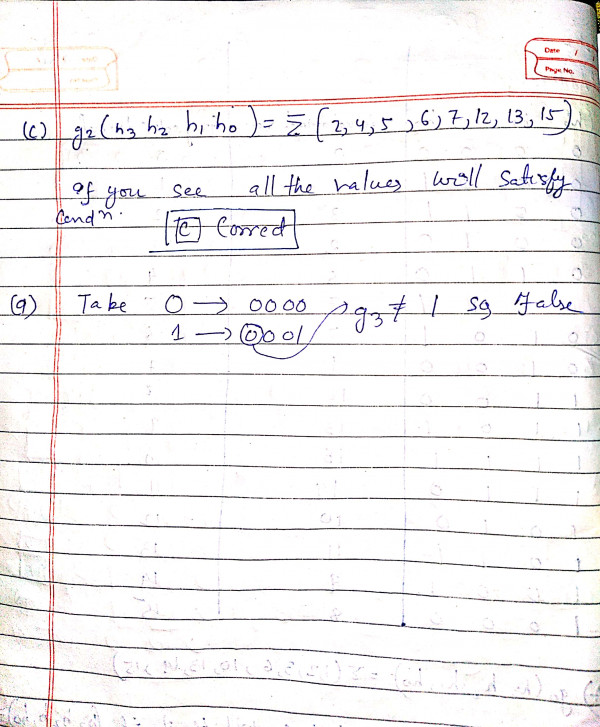 Date /
Page No.
(c) g2(h3 h2 h1 h0) = Σ [2, 4, 5, 6, 7, 12, 13, 15)
If you see all the values will satisfy
Condn.
[C] Correct
(a) Take 0 → 0000 g3 ≠ 1 so False
1 → 0001